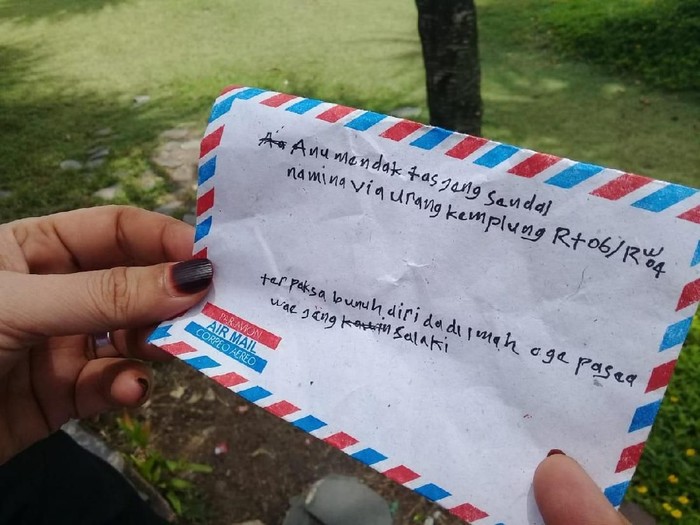 Aa Anu mendak tas jeng Sendal
namina Via urang kemplung Rt06/Rw04
terpaksa bunuh diri da di imah oge pasea
wae jeng Salaki
PAR AVION
AIR MAIL
CORREO AEREO